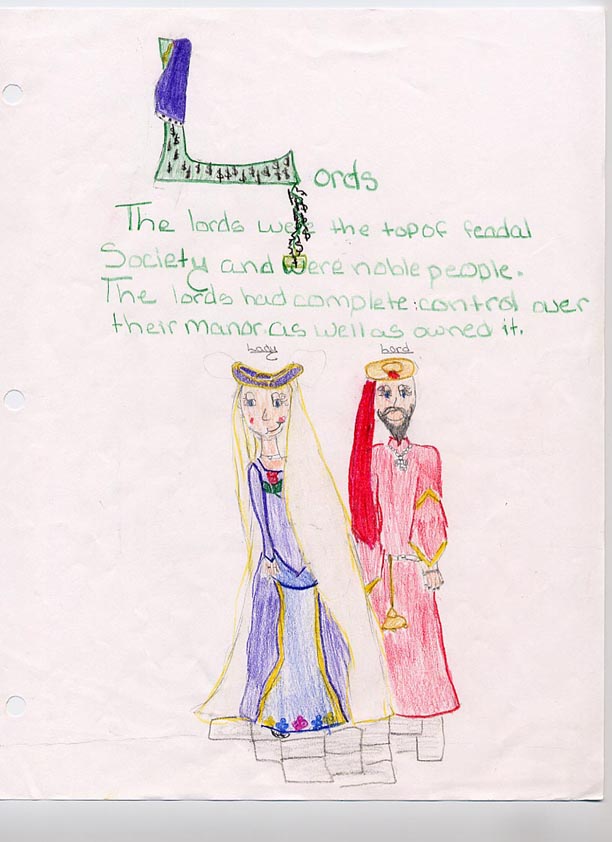 Lords
The lords were the top of feadal
Society and were noble people.
The lords had complete control over
their manor as well as owned it.
Lady Lord